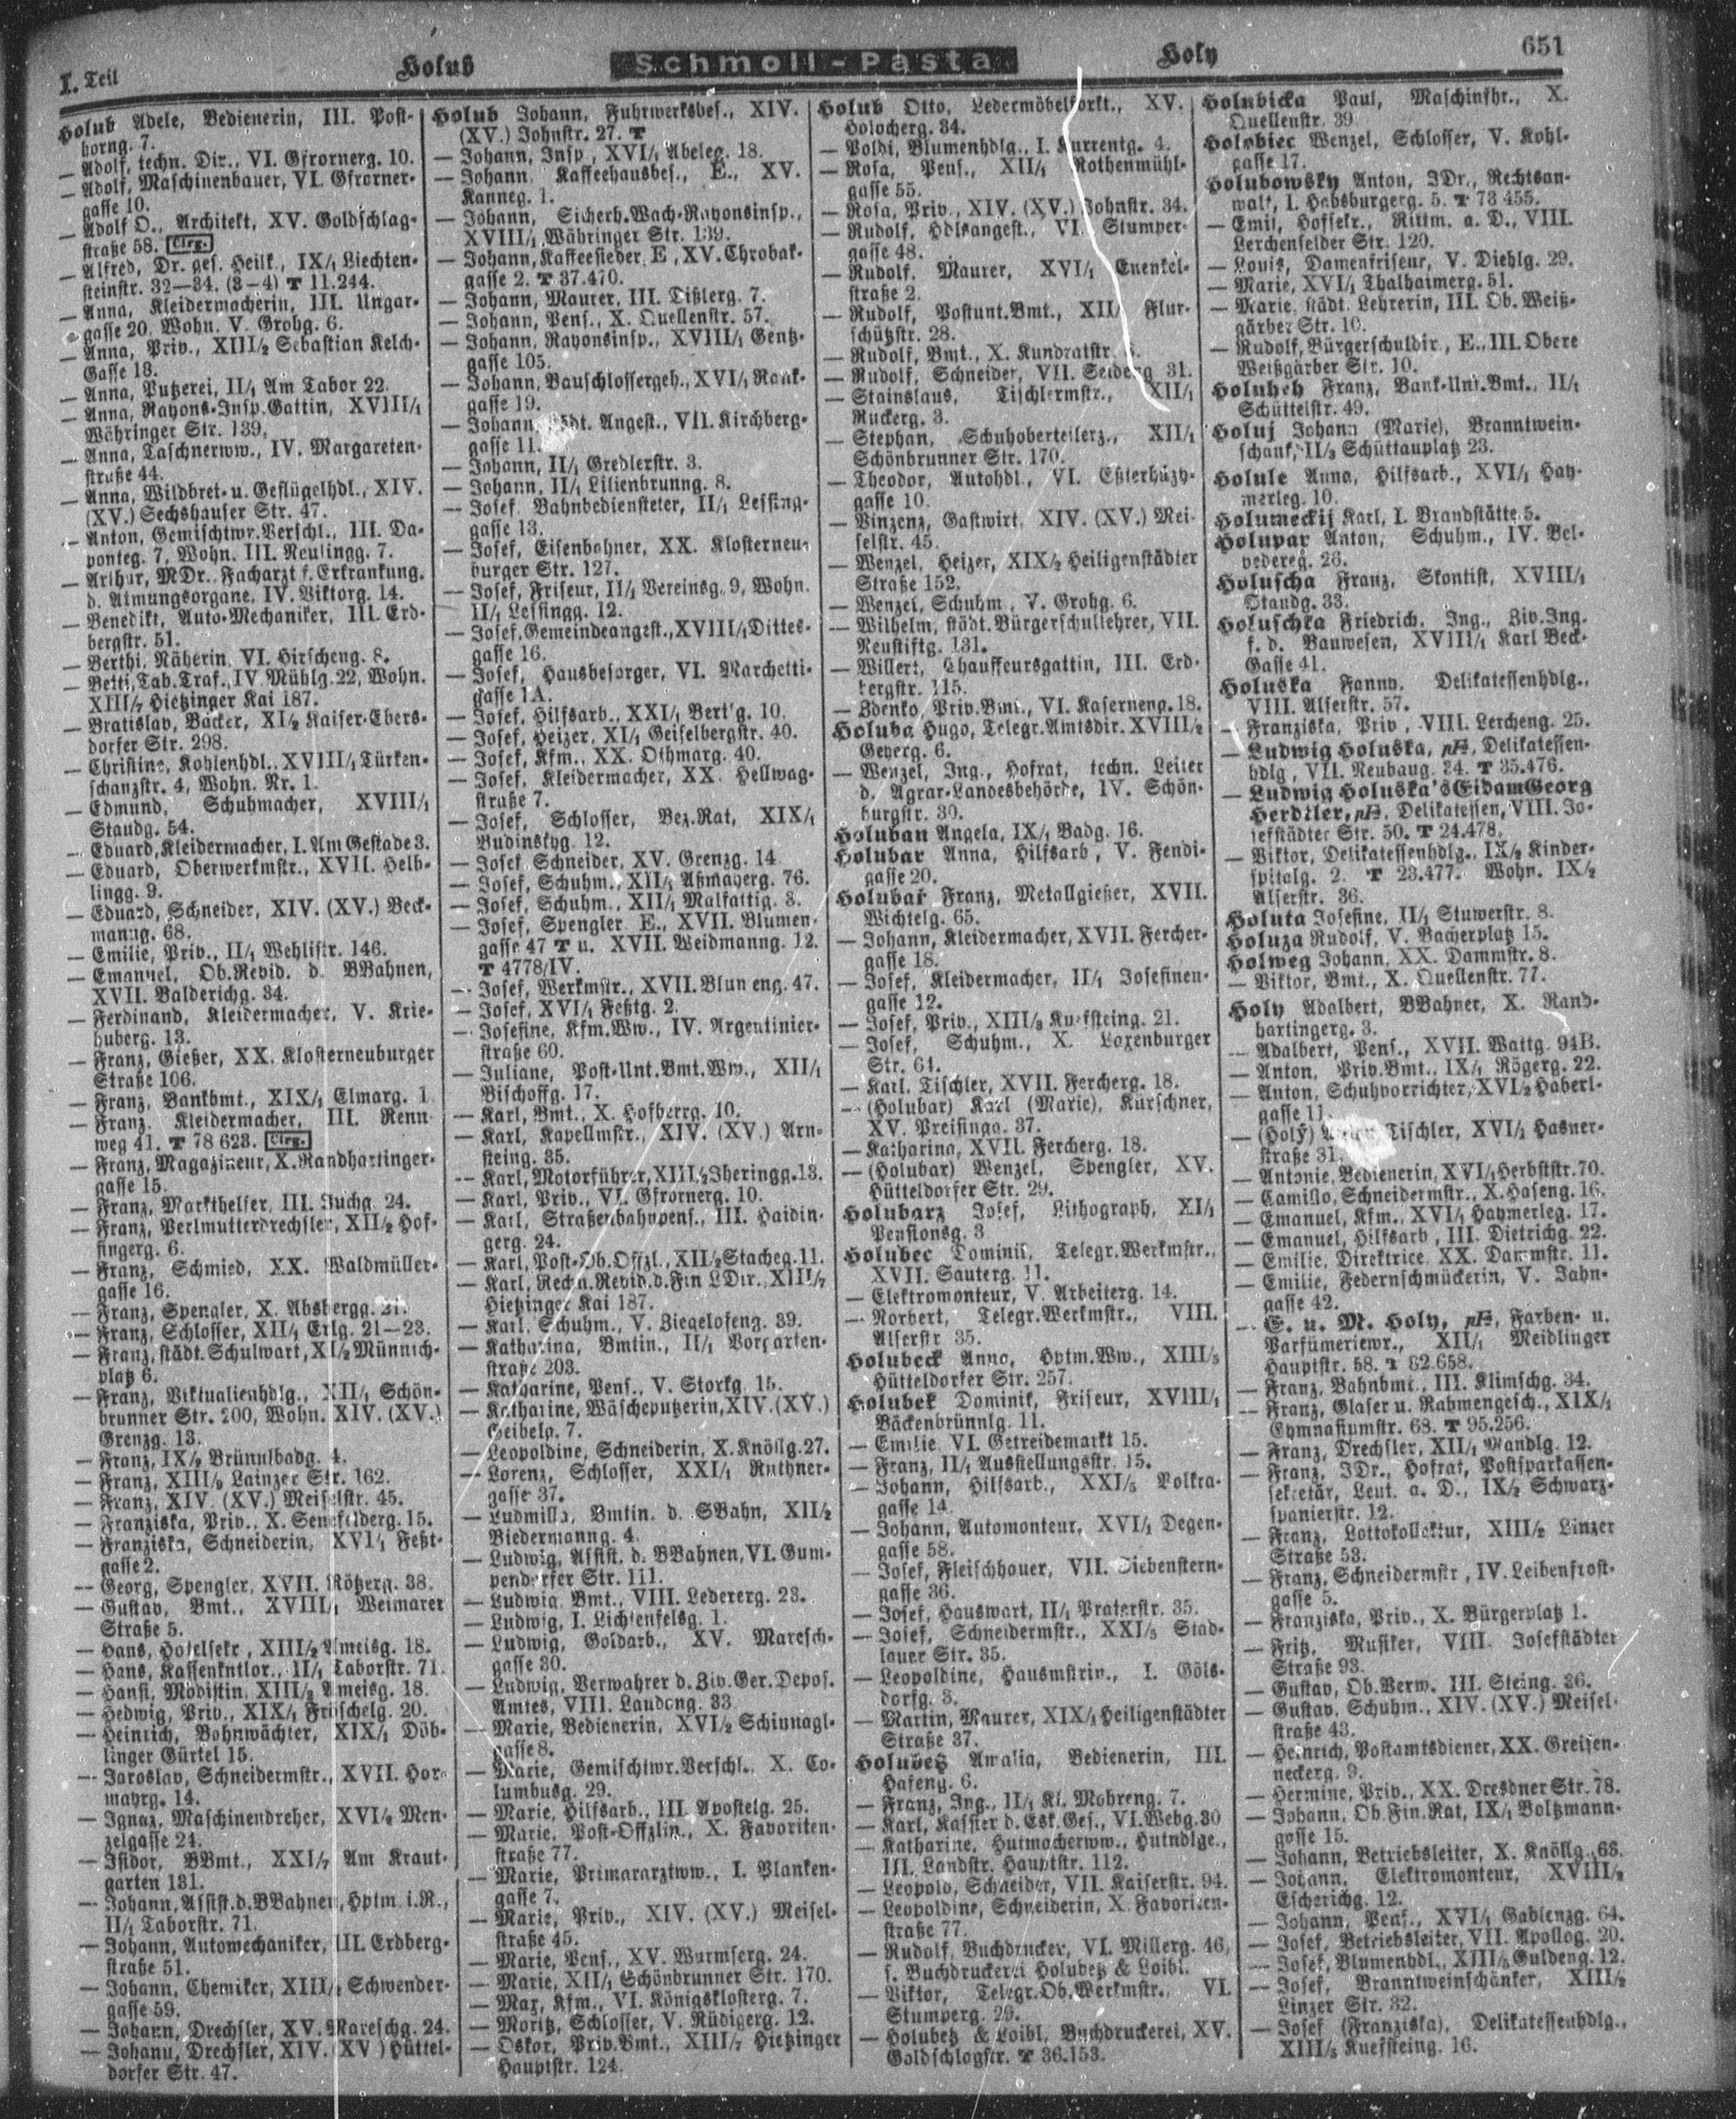 I. Teil
Holub
Schmoll-Pasta
Holy
651
Holub Adele, Bedienerin, III. Post-
horng. 7.
— Adolf, techn. Dir., VI. Gfrornerg. 10.
— Adolf, Maschinenbauer, VI. Gfrorner-
gasse 10.
— Adolf O., Architekt, XV. Goldschlag-
straße 58. Clrg.
— Alfred, Dr. ges. Heilk., IX/1 Liechten-
steinstr. 32—34. (3—4) T 11.244.
— Anna, Kleidermacherin, III. Ungar-
gasse 20, Wohn. V. Grohg. 6.
— Anna, Priv., XIII/2 Sebastian Kelch-
Gasse 18.
— Anna, Putzerei, II/1 Am Tabor 22.
— Anna, Rayons-Insp.Gattin, XVIII/1
Währinger Str. 139.
— Anna, Taschnerww., IV. Margareten-
straße 44.
— Anna, Wildbret- u. Geflügelhdl., XIV.
(XV.) Sechshauser Str. 47.
— Anton, Gemischtwr.Verschl., III. Da-
ponteg. 7, Wohn. III. Neulingg. 7.
— Arthur, MDr., Facharzt f. Erkrankung.
d. Atmungsorgane, IV. Viktorg. 14.
— Benedikt, Auto-Mechaniker, III. Erd-
bergstr. 51.
— Berthi, Näherin, VI. Hirscheng. 8.
— Betti, Tab.Traf., IV. Mühlg. 22, Wohn.
XIII/7 Hietzinger Kai 187.
— Bratislav, Bäcker, XI/2 Kaiser-Ebers-
dorfer Str. 298.
— Christine, Kohlenhdl., XVIII/1 Türken-
schanzstr. 4, Wohn. Nr. 1.
— Edmund, Schuhmacher, XVIII/1
Staudg. 54.
— Eduard, Kleidermacher, I. Am Gestade 3.
— Eduard, Oberwerkmstr., XVII. Helb-
lingg. 9.
— Eduard, Schneider, XIV. (XV.) Beck-
manng. 68.
— Emilie, Priv., II/1 Wehlistr. 146.
— Emanuel, Ob.Revid. d. BBahnen,
XVII. Balderichg. 34.
— Ferdinand, Kleidermacher, V. Krie-
huberg. 13.
— Franz, Gießer, XX. Klosterneuburger
Straße 106.
— Franz, Bankbmt., XIX/1 Elmarg. 1.
— Franz, Kleidermacher, III. Renn-
weg 41. T 78 623. Clrg.
— Franz, Magazineur, X. Randhartinger-
gasse 15.
— Franz, Markthelfer, III. Juchg. 24.
— Franz, Perlmutterdrechsler, XII/2 Hof-
fingerg. 6.
— Franz, Schmied, XX. Waldmüller-
gasse 16.
— Franz, Spengler, X. Absbergg.
— Franz, Schlosser, XII/1 Erlg. 21—23.
— Franz, städt. Schulwart, XI/2 Münnich-
platz 6.
— Franz, Viktualienhdlg., XII/1 Schön-
brunner Str. 200, Wohn. XIV. (XV.)
Grenzg. 13.
— Franz, IX/2 Brünnlbadg. 4.
— Franz, XIII/9 Lainzer Str. 162.
— Franz, XIV. (XV.) Meiselstr. 45.
— Franziska, Priv., X. Senefelderg. 15.
— Franziska, Schneiderin, XVI/1 Feßt-
gasse 2.
— Georg, Spengler, XVII. Rötzerg. 38.
— Gustav, Bmt., XVIII/1 Weimarer
Straße 5.
— Hans, Hotelsekr., XIII/2 Ameisg. 18.
— Hans, Kassenkntlor., II/1 Taborstr. 71.
— Hansi, Modistin, XIII/2 Ameisg. 18.
— Hedwig, Priv., XIX/1 Fröschelg. 20.
— Heinrich, Bohnwächter, XIX/1 Döb-
linger Gürtel 15.
— Jaroslav, Schneidermstr., XVII. Hor-
mayrg. 14.
— Ignaz, Maschinendreher, XVI/2 Men-
zelgasse 24.
— Isidor, BBmt., XXI/7 Am Kraut-
garten 131.
— Johann, Assist.d.BBahnen, Hptm i.R.,
II/1 Taborstr. 71.
— Johann, Automechaniker, III. Erdberg-
straße 51.
— Johann, Chemiker, XIII/2 Schwender-
gasse 59.
— Johann, Drechsler, XV. Mareschg. 24.
— Johann, Drechsler, XIV. (XV.) Hüttel-
dorfer Str. 47.
Holub Johann, Fuhrwerksbes., XIV.
(XV.) Johnstr. 27. T
— Johann, Insp., XVI/1 Abeleg. 18.
— Johann, Kaffeehausbes., E., XV.
Kanneg. 1.
— Johann, Sicherh.Wach-Rayonsinsp.,
XVIII/1 Währinger Str. 139.
— Johann, Kaffeesieder, E., XV. Chrobak-
gasse 2. T 37.470.
— Johann, Maurer, III. Dißlerg. 7.
— Johann, Pens., X. Quellenstr. 57.
— Johann, Rayonsinsp., XVIII/1 Gentz-
gasse 105.
— Johann, Bauschlossergeh., XVI/1 Rank-
gasse 19.
— Johann, städt. Angest., VII. Kirchberg-
gasse 11.
— Johann, II/1 Gredlerstr. 3.
— Johann, II/1 Lilienbrunng. 8.
— Josef, Bahnbediensteter, II/1 Lessing-
gasse 13.
— Josef, Eisenbahner, XX. Klosterneu-
burger Str. 127.
— Josef, Friseur, II/1 Vereinsg. 9, Wohn.
II/1 Lessingg. 12.
— Josef, Gemeindeangest., XVIII/1 Dittes-
gasse 16.
— Josef, Hausbesorger, VI. Marchetti-
gasse 1A.
— Josef, Hilfsarb., XXI/1 Bertlg. 10.
— Josef, Heizer, XI/1 Geiselbergstr. 40.
— Josef, Kfm., XX. Othmarg. 40.
— Josef, Kleidermacher, XX. Hellwag-
straße 7.
— Josef, Schlosser, Bez.Rat, XIX/1
Budinskyg. 12.
— Josef, Schneider, XV. Grenzg. 14.
— Josef, Schuhm., XII/1 Aßmayerg. 76.
— Josef, Schuhm., XII/1 Malfattig. 3.
— Josef, Spengler, E., XVII. Blumen-
gasse 47 T u. XVII. Weidmanng. 12.
T 4778/IV.
— Josef, Werkmstr., XVII. Blumeng. 47.
— Josef, XVI/1 Feßtg. 2.
— Josefine, Kfm.Ww., IV. Argentinier-
straße 60.
— Juliane, Post-Unt.Bmt.Ww., XII/1
Bischoffg. 17.
— Karl, Bmt., X. Hofherrg. 10.
— Karl, Kapellmstr., XIV. (XV.) Arn-
steing. 35.
— Karl, Motorführer, XIII/2 Iheringg. 13.
— Karl, Priv., VI. Gfrornerg. 10.
— Karl, Straßenbahnpens., III. Haidin-
gerg. 24.
— Karl, Post-Ob.Offzl., XII/2 Stacheg. 11.
— Karl, Rechn.Revid.d.Fin L.Dir., XIII/7
Hietzinger Kai 187.
— Karl, Schuhm., V. Ziegelofeng. 39.
— Katharina, Bmtin., II/1 Vorgarten-
straße 203.
— Katharine, Pens., V. Storkg. 15.
— Katharine, Wäscheputzerin, XIV. (XV.)
Geibelg. 7.
— Leopoldine, Schneiderin, X. Knöllg. 27.
— Lorenz, Schlosser, XXI/1 Ruthner-
gasse 37.
— Ludmilla, Bmtin. d. SBahn, XII/2
Biedermanng. 4.
— Ludwig, Assist. d. BBahnen, VI. Gum-
pendorfer Str. 111.
— Ludwig, Bmt., VIII. Ledererg. 23.
— Ludwig, I. Lichtenfelsg. 1.
— Ludwig, Goldarb., XV. Maresch-
gasse 30.
— Ludwig, Verwahrer d. Ziv. Ger. Depos.
Amtes, VIII. Laudong. 33.
— Marie, Bedienerin, XVI/2 Schinnagl-
gasse 8.
— Marie, Gemischtwr.Verschl., X. Co-
lumbusg. 29.
— Marie, Hilfsarb., III. Apostelg. 25.
— Marie, Post-Offzlin., X. Favoriten-
straße 77.
— Marie, Primararztww., I. Planken-
gasse 7.
— Marie, Priv., XIV. (XV.) Meisel-
straße 45.
— Marie, Pens., XV. Wurmserg. 24.
— Marie, XII/1 Schönbrunner Str. 170.
— Max, Kfm., VI. Königsklosterg. 7.
— Moritz, Schlosser, V. Rüdigerg. 12.
— Oskar, Priv.Bmt., XIII/7 Hietzinger
Hauptstr. 124.
Holub Otto, Ledermöbelforkt., XV.
Holocherg. 34.
— Poldi, Blumenhdlg., I. Kurrentg. 4.
— Rosa, Pens., XII/1 Rothenmühl-
gasse 55.
— Rosa, Priv., XIV. (XV.) Johnstr. 34.
— Rudolf, Hdlsangest., VI. Stumper-
gasse 48.
— Rudolf, Maurer, XVI/1 Enenkel-
straße 2.
— Rudolf, Postunt.Bmt., XII/ Flur-
schützstr. 28.
— Rudolf, Bmt., X. Kundratstr.
— Rudolf, Schneider, VII. Seideng. 31.
— Stainslaus, Tischlermstr., XII/1
Ruckerg. 3.
— Stephan, Schuhoberteilerz., XII/1
Schönbrunner Str. 170.
— Theodor, Autohdl., VI. Eßterházy-
gasse 10.
— Vinzenz, Gastwirt, XIV. (XV.) Mei-
selstr. 45.
— Wenzel, Heizer, XIX/2 Heiligenstädter
Straße 152.
— Wenzel, Schuhm., V. Grohg. 6.
— Wilhelm, städt. Bürgerschullehrer, VII.
Neustiftg. 131.
— Willert, Chauffeursgattin, III. Erd-
bergstr. 115.
— Zdenko, Priv.Bmt., VI. Kaserneng. 18.
Holuba Hugo, Telegr.Amtsdir. XVIII/2
Geyerg. 6.
— Wenzel, Ing., Hofrat, techn. Leiter
d. Agrar-Landesbehörde, IV. Schön-
burgstr. 30.
Holuban Angela, IX/1 Badg. 16.
Holubar Anna, Hilfsarb., V. Fendi-
gasse 20.
Holubař Franz, Metallgießer, XVII.
Wichtelg. 65.
— Johann, Kleidermacher, XVII. Fercher-
gasse 18.
— Josef, Kleidermacher, II/1 Josefinen-
gasse 12.
— Josef, Priv., XIII/3 Kuefsteing. 21.
— Josef, Schuhm., X. Laxenburger
Str. 64.
— Karl, Tischler, XVII. Fercherg. 18.
— (Holubar) Karl (Marie), Kürschner,
XV. Preisingg. 37.
— Katharina, XVII. Fercherg. 18.
— (Holubar) Wenzel, Spengler, XV.
Hütteldorfer Str. 29.
Holubarz Josef, Lithograph, XI/1
Pensionsg. 3
Holubec Dominik, Telegr.Werkmstr.,
XVII. Sauterg. 11.
— Elektromonteur, V. Arbeiterg. 14.
— Norbert, Telegr.Werkmstr., VIII.
Alserstr. 35.
Holubeck Anna, Hptm.Ww., XIII/5
Hütteldorfer Str. 257.
Holubek Dominik, Friseur, XVIII/1
Bäckenbrünnlg. 11.
— Emilie, VI. Getreidemarkt 15.
— Franz, II/1 Ausstellungsstr. 15.
— Johann, Hilfsarb., XXI/5 Polkra-
gasse 14.
— Johann, Automonteur, XVI/1 Degen-
gasse 58.
— Josef, Fleischhauer, VII. Siebenstern-
gasse 36.
— Josef, Hauswart, II/1 Praterstr. 35.
— Josef, Schneidermstr., XXI/5 Stad-
lauer Str. 35.
— Leopoldine, Hausmstrin., I. Göls-
dorfg. 3.
— Martin, Maurer, XIX/1 Heiligenstädter
Straße 37.
Holubetz Amalia, Bedienerin, III.
Hafeng. 6.
— Franz, Ing., II/1 Kl. Mohreng. 7.
— Karl, Kassier d. Esk.Ges., VI. Webg. 30
— Katharine, Hutmacherww., Hutndlge.,
III. Landstr. Hauptstr. 112.
— Leopold, Schneider, VII. Kaiserstr. 94.
— Leopoldine, Schneiderin, X. Favoriten-
straße 77.
— Rudolf, Buchdrucker, VI. Millerg. 46,
s. Buchdruckerei Holubetz & Loibl.
— Viktor, Telegr.Ob.Werkmstr., VI.
Stumperg. 29.
— Holubetz & Loibl, Buchdruckerei, XV.
Goldschlogstr. T 36.153.
Holubicka Paul, Maschinfhr., X.
Quellenstr. 39
Holubiec Wenzel, Schlosser, V. Kohl-
gasse 17.
Holubowsky Anton, JDr., Rechtsan-
walt, I. Habsburgerg. 5. T 73 455.
— Emil, Hofsekr., Rittm. a. D., VIII.
Lerchenfelder Str. 120.
— Louis, Damenfriseur, V. Diehlg. 29.
— Marie, XVI/1 Thalhaimerg. 51.
— Marie, städt. Lehrerin, III. Ob. Weiß-
gärber Str. 10.
— Rudolf, Bürgerschuldir., E., III. Obere
Weißgärber Str. 10.
Holubeh Franz, Bank-Unt.Bmt., II/1
Schüttelstr. 49.
Holuj Johann (Marie), Branntwein-
schank, II/3 Schüttauplatz 23.
Holule Anna, Hilfsarb., XVI/1 Hay-
merleg. 10.
Holumeckij Karl, I. Brandstätte 5.
Holupar Anton, Schuhm., IV. Bel-
vedereg. 26.
Holuscha Franz, Skontist, XVIII/1
Staudg. 33.
Holuschka Friedrich, Ing., Ziv.Ing.
f. d. Bauwesen, XVIII/1 Karl Beck-
Gasse 41.
Holuska Fanny, Delikatessenhdlg.,
VIII. Alserstr. 57.
— Franziska, Priv., VIII. Lercheng. 25.
— Ludwig Holuska, pF, Delikatessen-
hdlg., VII. Neubaug. 24. T 35.476.
— Ludwig Holuska's Eidam Georg
Herdtler, pF, Delikatessen, VIII. Jo-
sefstädter Str. 50. T 24.478.
— Viktor, Delikatessenhdlg., IX/2 Kinder-
spitalg. 2. T 23.477. Wohn. IX/2
Alserstr. 36.
Holuta Josefine, II/1 Stuwerstr. 8.
Holuza Rudolf, V. Bacherplatz 15.
Holweg Johann, XX. Dammstr. 8.
— Viktor, Bmt., X. Quellenstr. 77.
Holy Adalbert, BBahner, X. Rand-
hartingerg. 3.
— Adalbert, Pens., XVII. Wattg. 94B.
— Anton, Priv.Bmt., IX/1 Rögerg. 22.
— Anton, Schuhvorrichter, XVI/2 Haberl-
gasse 11.
— (Holý) Tischler, XVI/1 Hasner-
straße 31.
— Antonie, Bedienerin, XVI/1 Herbststr. 70.
— Camillo, Schneidermstr., X. Haseng. 16.
— Emanuel, Kfm., XVI/1 Haymerleg. 17.
— Emanuel, Hilfsarb., III. Dietrichg. 22.
— Emilie, Direktrice, XX. Dammstr. 11.
— Emilie, Federnschmückerin, V. Jahn-
gasse 42.
— E. u. M. Holy, pF, Farben- u.
Parfümeriewr., XII/1 Meidlinger
Hauptstr. 58. T 82.658.
— Franz, Bahnbmt., III. Klimschg. 34.
— Franz, Glaser u. Rahmengesch., XIX/1
Gymnasiumstr. 68. T 95.256.
— Franz, Drechsler, XII/1 Mandlg. 12.
— Franz, JDr., Hofrat, Postsparkassen-
sekretär, Leut. a. D., IX/2 Schwarz-
spanierstr. 12.
— Franz, Lottokollektur, XIII/2 Linzer
Straße 53.
— Franz, Schneidermstr., IV. Leibenfrost-
gasse 5.
— Franziska, Priv., X. Bürgerplatz 1.
— Fritz, Musiker, VIII. Josefstädter
Straße 93.
— Gustav, Ob.Verw. III. Steing. 36.
— Gustav, Schuhm., XIV. (XV.) Meisel-
straße 43.
— Heinrich, Postamtsdiener, XX. Greisen-
neckerg. 9.
— Hermine, Priv., XX. Dresdner Str. 78.
— Johann, Ob.Fin.Rat, IX/1 Boltzmann-
gasse 15.
— Johann, Betriebsleiter, X. Knöllg. 68.
— Johann, Elektromonteur, XVIII/2
Escherichg. 12.
— Johann, Pens., XVI/1 Gablenzg. 64.
— Josef, Betriebsleiter, VII. Apollog. 20.
— Josef, Blumenhdl., XIII/5 Guldeng. 12.
— Josef, Branntweinschänker, XIII/2
Linzer Str. 32.
— Josef (Franziska), Delikatessenhdlg.,
XIII/3 Kuefsteing. 16.